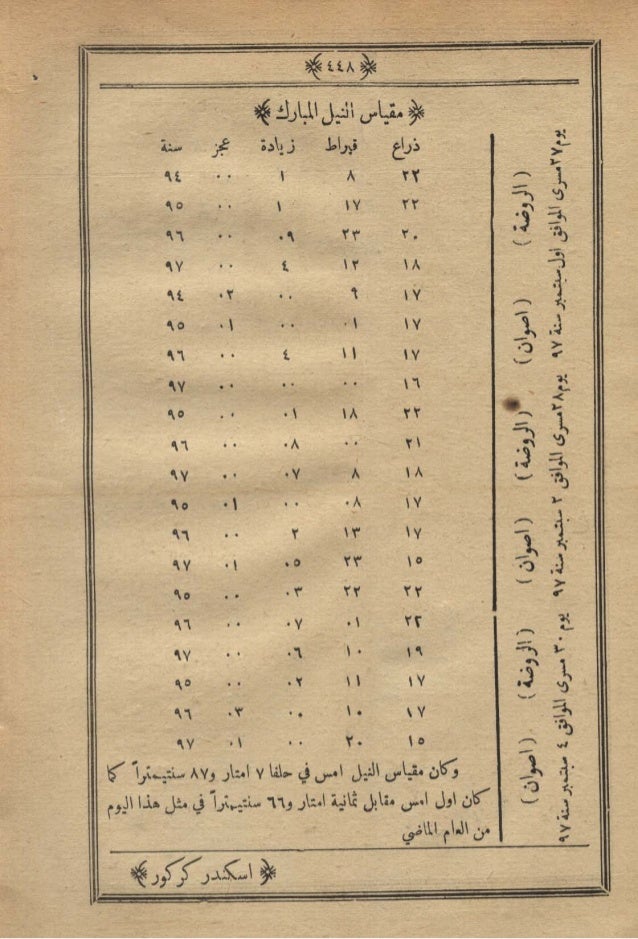 ﴿٤٤٨﴾
﴿مقياس النيل المبارك﴾
ذراع قيراط زيادة عجز سنة
٢٢ ٨ ١ ٠٠ ٩٤
٢٢ ١٧ ١ ٠٠ ٩٥
٢٠ ٢٣ ٠٩ ٠٠ ٩٦
١٨ ١٢ ٤ ٠٠ ٩٧
١٧ ٩ ٠٠ ٠٢ ٩٤
١٧ ٠١ ٠٠ ٠١ ٩٥
١٧ ١١ ٤ ٠٠ ٩٦
١٦ ٠٠ ٠٠ ٠٠ ٩٧
٢٢ ١٨ ٠١ ٠٠ ٩٥
٢١ ٠٠ ٠٨ ٠٠ ٩٦
١٨ ٨ ٠٧ ٠٠ ٩٧
١٧ ٠٨ ٠٠ ٠١ ٩٥
١٧ ١٣ ٢ ٠٠ ٩٦
١٥ ٢٣ ٠٥ ٠١ ٩٧
٢٢ ٢٢ ٠٣ ٠٠ ٩٥
٢٢ ٠١ ٠٧ ٠٠ ٩٦
١٩ ١٠ ٠٦ ٠٠ ٩٧
١٧ ١١ ٠٢ ٠٠ ٩٥
١٧ ١٠ ٠٠ ٠٣ ٩٦
١٥ ٢٠ ٠٠ ٠١ ٩٧
يوم ٢٧ مسرى الموافق اول سبتمبر سنة ٩٧
(الروضة)
(اصوان)
يوم ٢٨ مسرى الموافق ٢ سبتمبر سنة ٩٧
(الروضة)
(اصوان)
يوم ٣٠ مسرى الموافق ٤ سبتمبر سنة ٩٧
(الروضة)
(اصوان)
وكان مقياس النيل امس في حلفا ٧ امتار و٨٧ سنتيمتراً كما
كان اول امس مقابل ثمانية امتار و٦٦ سنتيمتراً في مثل هذا اليوم
من العام الماضي
﴿اسكندر كركور﴾